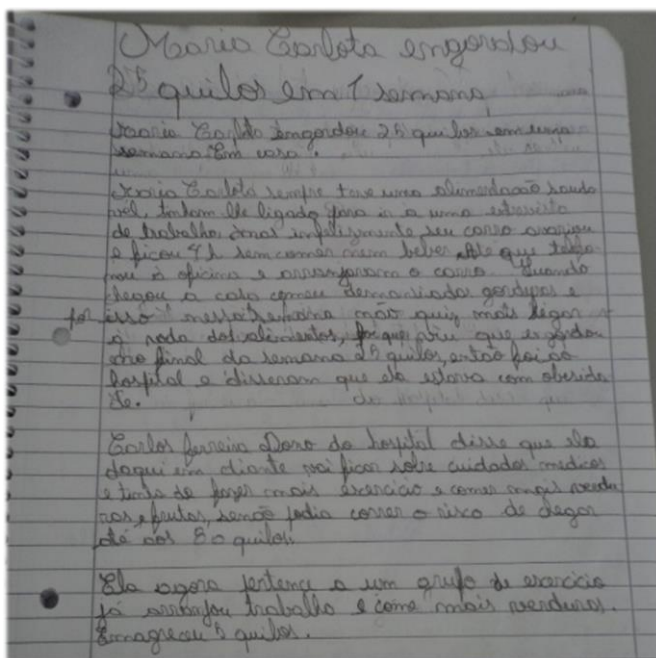 Maria Carlota engordou
25 quilos em 1 semana
Maria Carlota engordou 25 quilos em uma
semana. Em casa.
Maria Carlota sempre teve uma alimentação sauda
vel, tinham lhe ligado para ir a uma entrevista
de trabalho mas infelizmente seu carro avariou
e ficou 4h sem comer nem beber. Até que
à oficina e arranjaram o carro. Quando
chegou a casa comeu demasiadas gorduras e
por isso nessa semana não quiz mais ligar
á roda dos alimentos, viu que engordou
no final da semana 25 quilos, então foi ao
hospital e disseram que ela estava com obesida
de.
Carlos Ferreira Dono do hospital disse que ela
daqui em diante vai ficar sobre cuidados medicos
e tinha de fazer mais exercicio e comer mais verdu
ras e frutas, senão podia correr o risco de chegar
até aos 80 quilos.
Ela agora pertence a um grupo de exercicio
já arranjou trabalho e come mais verduras.
Emagreceu 5 quilos.